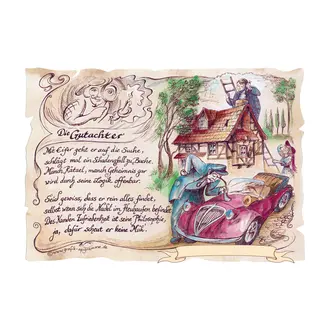 Die Gutachter
Mit Eifer geht er auf die Suche,
schlägt mal ein Schadensfall zu Buche.
Manch Rätsel, manch Geheimnis gar
wird durch seine Logik offenbar.
Seid gewiss, dass er rein alles findet,
selbst wenn sich die Nadel im Heuhaufen befindet.
Des Kunden Zufriedenheit ist seine Philosophie,
ja, dafür scheut er keine Müh.